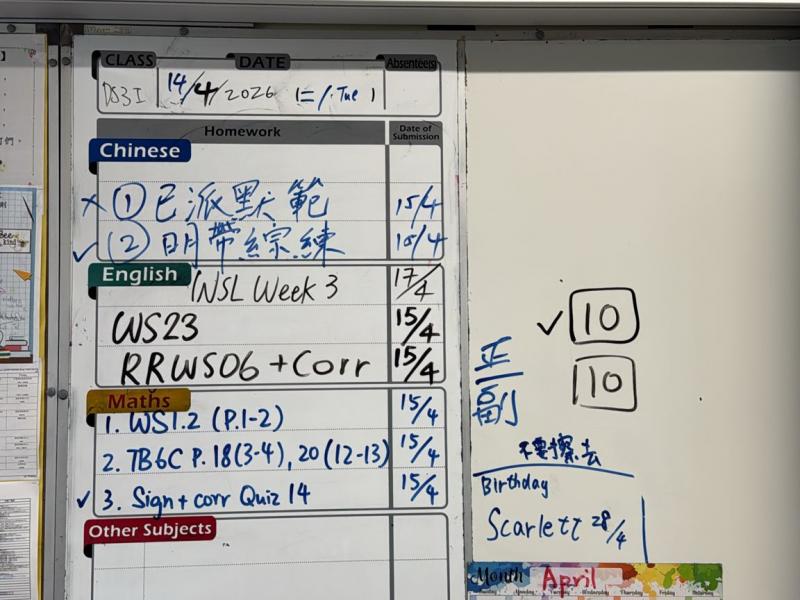 CLASS DATE Absentee(s)
14/4/2026 Tue
Homework Date of Submission
Chinese
① 已派默範 15/4
✓ ② 明帶綜練 15/4
English
WS23 15/4
RRWS06 + Corr 15/4
Week 3 17/4
Maths
1. WS1.2 (P.1-2) 15/4
2. TB6C P.18(3-4), 20(12-13) 15/4
✓ 3. Sign + corr Quiz 14 15/4
Other Subjects
✓ 10
正
副
10
不要擦去
Birthday
Scarlett 28/4
Month April